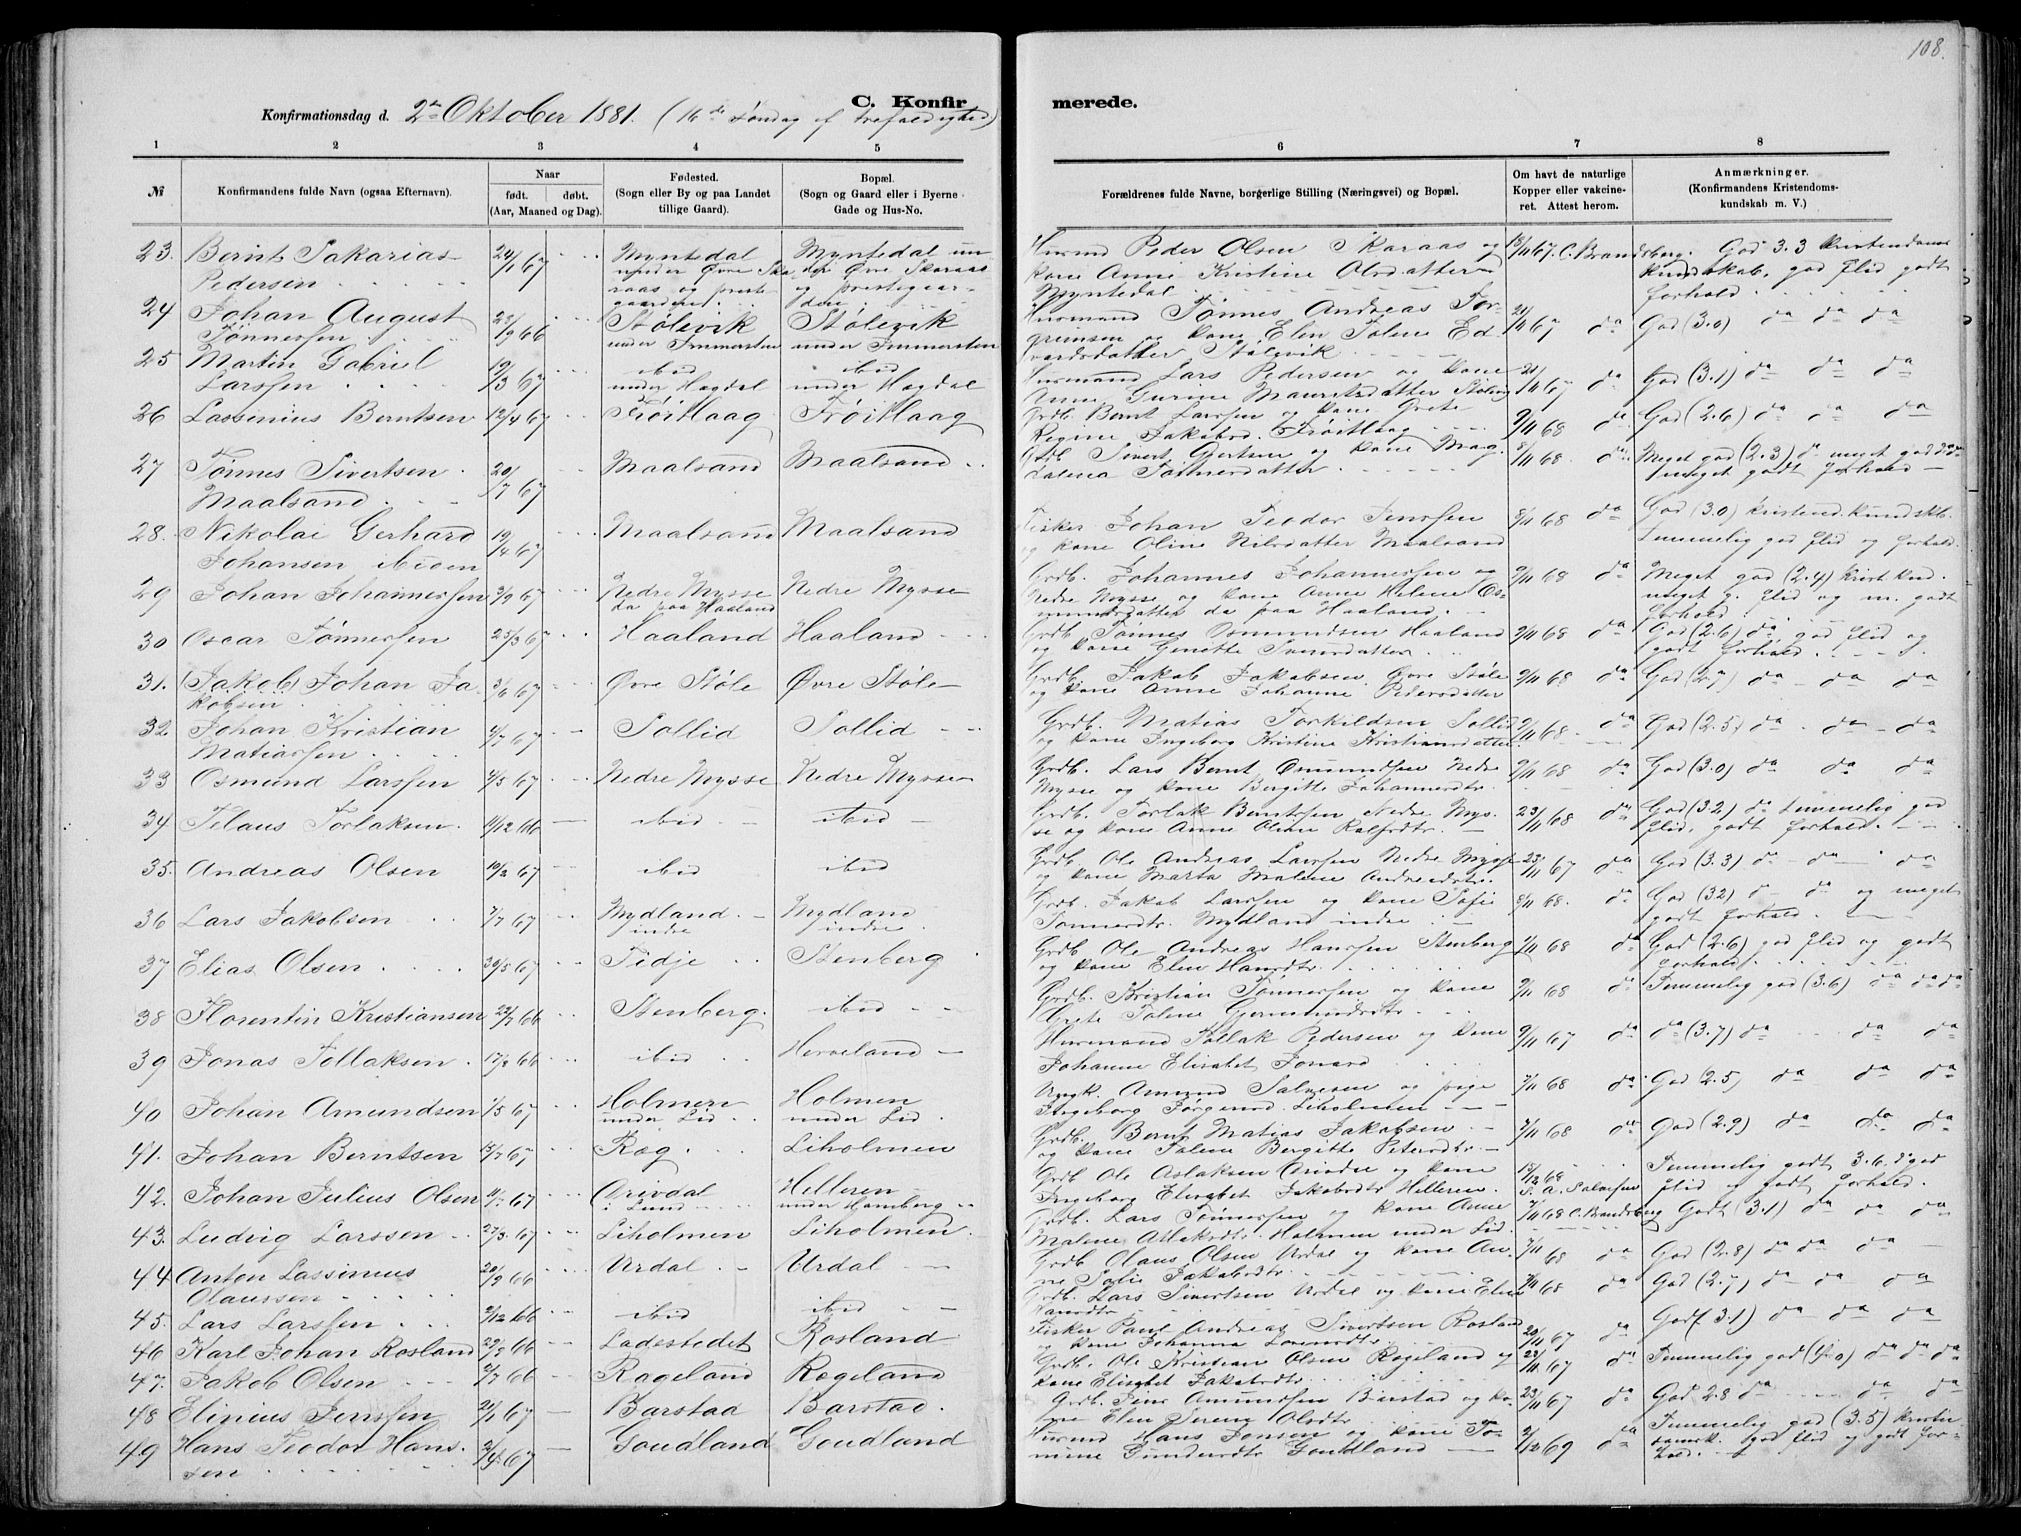 108.
Konfirmationsdag d. 2den Oktober 1881. (16de Søndag ef Trefoldighed)
C. Konfirmerede.
1 2 3 4 5 6 7 8
№
Konfirmandens fulde Navn (ogsaa Efternavn).
Naar
født. døbt.
(Aar, Maaned og Dag).
Fødested.
(Sogn eller By og paa Landet
tillige Gaard).
Bopæl.
(Sogn og Gaard eller i Byerne
Gade og Hus-No.
Forældrenes fulde Navne, borgerlige Stilling (Næringsvei) og Bopæl.
Om havt de naturlige
Kopper eller vakcine-
ret. Attest herom.
Anmærkninger.
(Konfirmandens Kristendoms-
kundskab m. V.)
23. Bernt Sakarias Pedersen 24/1 67 Myntedal under Øvre Skaraas og prestegaarden Myntedal under Øvre Skaraas og prestegaarden Husmd Peder Olsen Skaraas og kone Anne Kristine Olsdatter Myntedal 13/11 67. C. Brandsberg. God 3.3 Kristendomskundskab, god flid godt forhold
24 Johan August Tønnessen 23/9 66 Stølevik under Immersten Stølevik under Immersten Husmand Tønnes Andreas Torgrimsen og kone Elen Talene Edvardsdatter Stølevik 21/11 67 da God (3.0) da da da
25 Martin Gabriel Larssen 19/3 67 ibid under Hægdal ibid under Hægdal Husmand Lars Pedersen og kone Anne Gurine Mauritsdatter 21/11 67 da God (3.1) da da da
26 Lassenius Berntsen 12/4 67 Frøitlaag Frøitlaag Grdb. Bernt Larssen og kone Grete Regine Jakobsd. Frøitlaag 9/11 68 da God (2.6) da da da
27 Tønnes Sivertsen Maalsand 20/7 67 Maalsand Maalsand Grdb. Sivert Gertsen og kone Magdalena Tønnesdatter 8/11 68. da Meget god (2.3) da meget god meget godt forhold
28. Nikolai Gerhard Johansen ibiden 19/4 67 Maalsand Maalsand Fisker Johan Teodor Jenssen og kone Oline Nilsdatter Maalsand 8/11 68 da God (3.0) kristend. kundskb. Temmelig god flid og forhold.
29 Johan Johannessen 3/9 67 Nedre Mysse da paa Haaland Nedre Mysse Grdb. Johannes Johannessen og Nedre Mysse og kone Anne Helene Osmundsdatter da paa Haaland. 9/11 68 da Meget god (2.4) krist. knd. meget g. flid og m. godt forhold
30 Oscar Tønnessen 25/3 67 Haaland Haaland Grdb. Tønnes Osmundsen Haaland og kone Genette Sivertsdatter 9/11 68 da God (2.6) da god flid og godt forhold.
31. (Jakob) Johan Jakobsen 3/6 67 Øvre Støle Øvre Støle Grdb. Jakob Jakobsen Øvre Støle og kone Anne Johanne Pedersdatter 9/11 68 da God (2.7) da da da
32. Johan Kristian Matiassen 4/7 67 Sollid Sollid Grdb. Matias Torkildsen Sollid og kone Ingeborg Kristine Kristiansdatter 9/11 68. da God (2.5) da da da
33 Osmund Larssen 7/5 67 Nedre Mysse Nedre Mysse Grdb. Lars Bernt Osmundsen Nedre Mysse og kone Bergitte Johannesdtr. 9/11 68 da God (3.0) da da da
34 Telaus Torlaksen. 11/12 66 ibid ibid Grdb. Torlak Berntsen Nedre Mysse og kone Anne Oline 23/11 68 da God (3.2) da Temmelig god flid, godt forhold.
35. Andreas Olsen 10/2 67 ibid ibid Grdb. Ole Andreas Larssen Nedre Mysse og kone Marta Malene Andreasdtr. 23/11 67 da God (3.3) da da da
36 Lars Jakobsen 7/7 67 Mydland indre Mydland indre. Grdb. Jakob Larssen og kone Sofie Tønnesdtr. Mydland indre 8/11 68. da God (3.2) da da og meget godt forhold.
37 Elias Olsen 30/5 67 Tedje Stenberg Grdb. Ole Andreas Hanssen Stenberg og kone Elen Hansdtr. 7/11 68 da God (2.6) god flid og godt forhold
38 Florentin Kristiansen 22/7 66 Stenberg. ibid Grdb. Kristian Tønnessen og kone Grete Talene Germundsdtr 9/11 68 da Temmelig god (3.6) da da da
39 Jonas Tollaksen 17/8 66 ibid Herveland Husmand Tollak Pedersen og kone Johanne Elisabet Jonasd. 9/11 67 da da (3.7) da da da
40 Johan Amundsen 1/5 67 Holmen under Lid Holmen under Lid Ungk. Amund Salvesen og pige Ingeborg Jørgensd. Liholmen 7/11 68 da God (2.5) da da da
41. Johan Berntsen 15/7 67 Ræg Liholmen Grdb. Bernt Matias Jakobsen og kone Talene Bergitte Petersdtr 7/11 68 da God (2.9) da da da
42. Johan Julius Olsen 67 Arivdal i Lund Helleren under Hamberg Grdb Ole Aslaksen og kone Ingeborg Elisabet Jakobsdtr Helleren. 15/12 68 S. A. Salvesen Temmelig godt 3.6. da god flid og godt forhold.
43. Ludvig Larssen 27/3 67 Liholmen Liholmen Grdb. Lars Tønnessen og kone Anne Malene Aslaksdtr. Holmen under Lid. 7/11 68 C. Brandsberg Godt (3.1) da da da
44 Anton Lassinius Olaussen 20/9 66 Urdal Urdal Grdb Olaus Olsen Urdal og kone Anne Sofie Jakobsdtr. 7/11 68 da God (2.8) da da
45. Lars Larssen 2/12 66 ibid ibid Grdb. Lars Sivertsen Urdal og kone Elen Hansdtr 7/11 68 da God (2.7) da da da
46 Karl Johan Rosland 29/8 66 Ladestedet Rosland Fisker Paul Andreas Sivertsen Rosland og kone Johanna 20/11 67 da God (3.1) da da da
47. Jakob Olsen 2/7 66 Rageland Rægeland Grdb. Ole Kristian Olsen Rageland og kone Elisabet Jakobsdtr. 23/11 67 da Temmelig god (4.0) da da da
48 Elinius Jenssen 21/1 67 Barstad Barstad. Grdb. Jens Amundsen Barstad og kone Elen Serene Olsdtr 23/11 67 da God 2.8 da da da
49 Hans Teodor Hanssen 2/4 67 Goudland Goudland Husmd Hans Jonsen og kone Tomine Gundersdtr Goudland 2/12 69 da Temmelig god (3.5) kristendomsk. god flid og godt forhold.